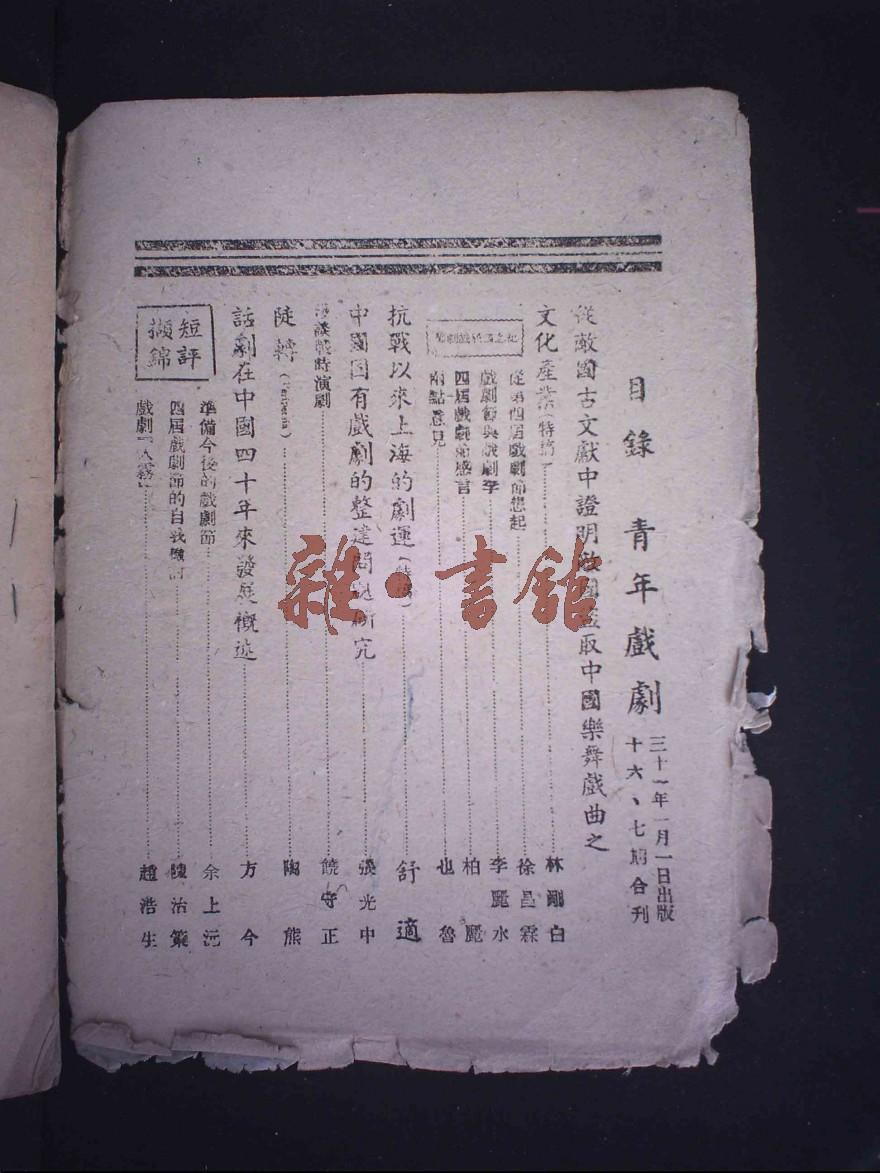 目錄 青年戲劇
三十一年一月一日出版
十六、七期合刊
從敵國古文獻中證明敵國盜取中國樂舞戲曲之
文化產業（特稿） 林剛白
從第四屆戲劇節想起 徐昌霖
戲劇節與戲劇季 李麗水
四屆戲劇節感言 柏麗
兩點意見 也魯
抗戰以來上海的劇運（特稿） 舒適
中國固有戲劇的整建問題研究 張光中
戰時演劇 饒守正
陡轉 陶熊
話劇在中國四十年來發展概述 方今
短評
擷錦
準備今後的戲劇節 余上沅
四屆戲劇節的自我檢討 陳治策
戲劇「人霧」 趙浩生
雜·書館